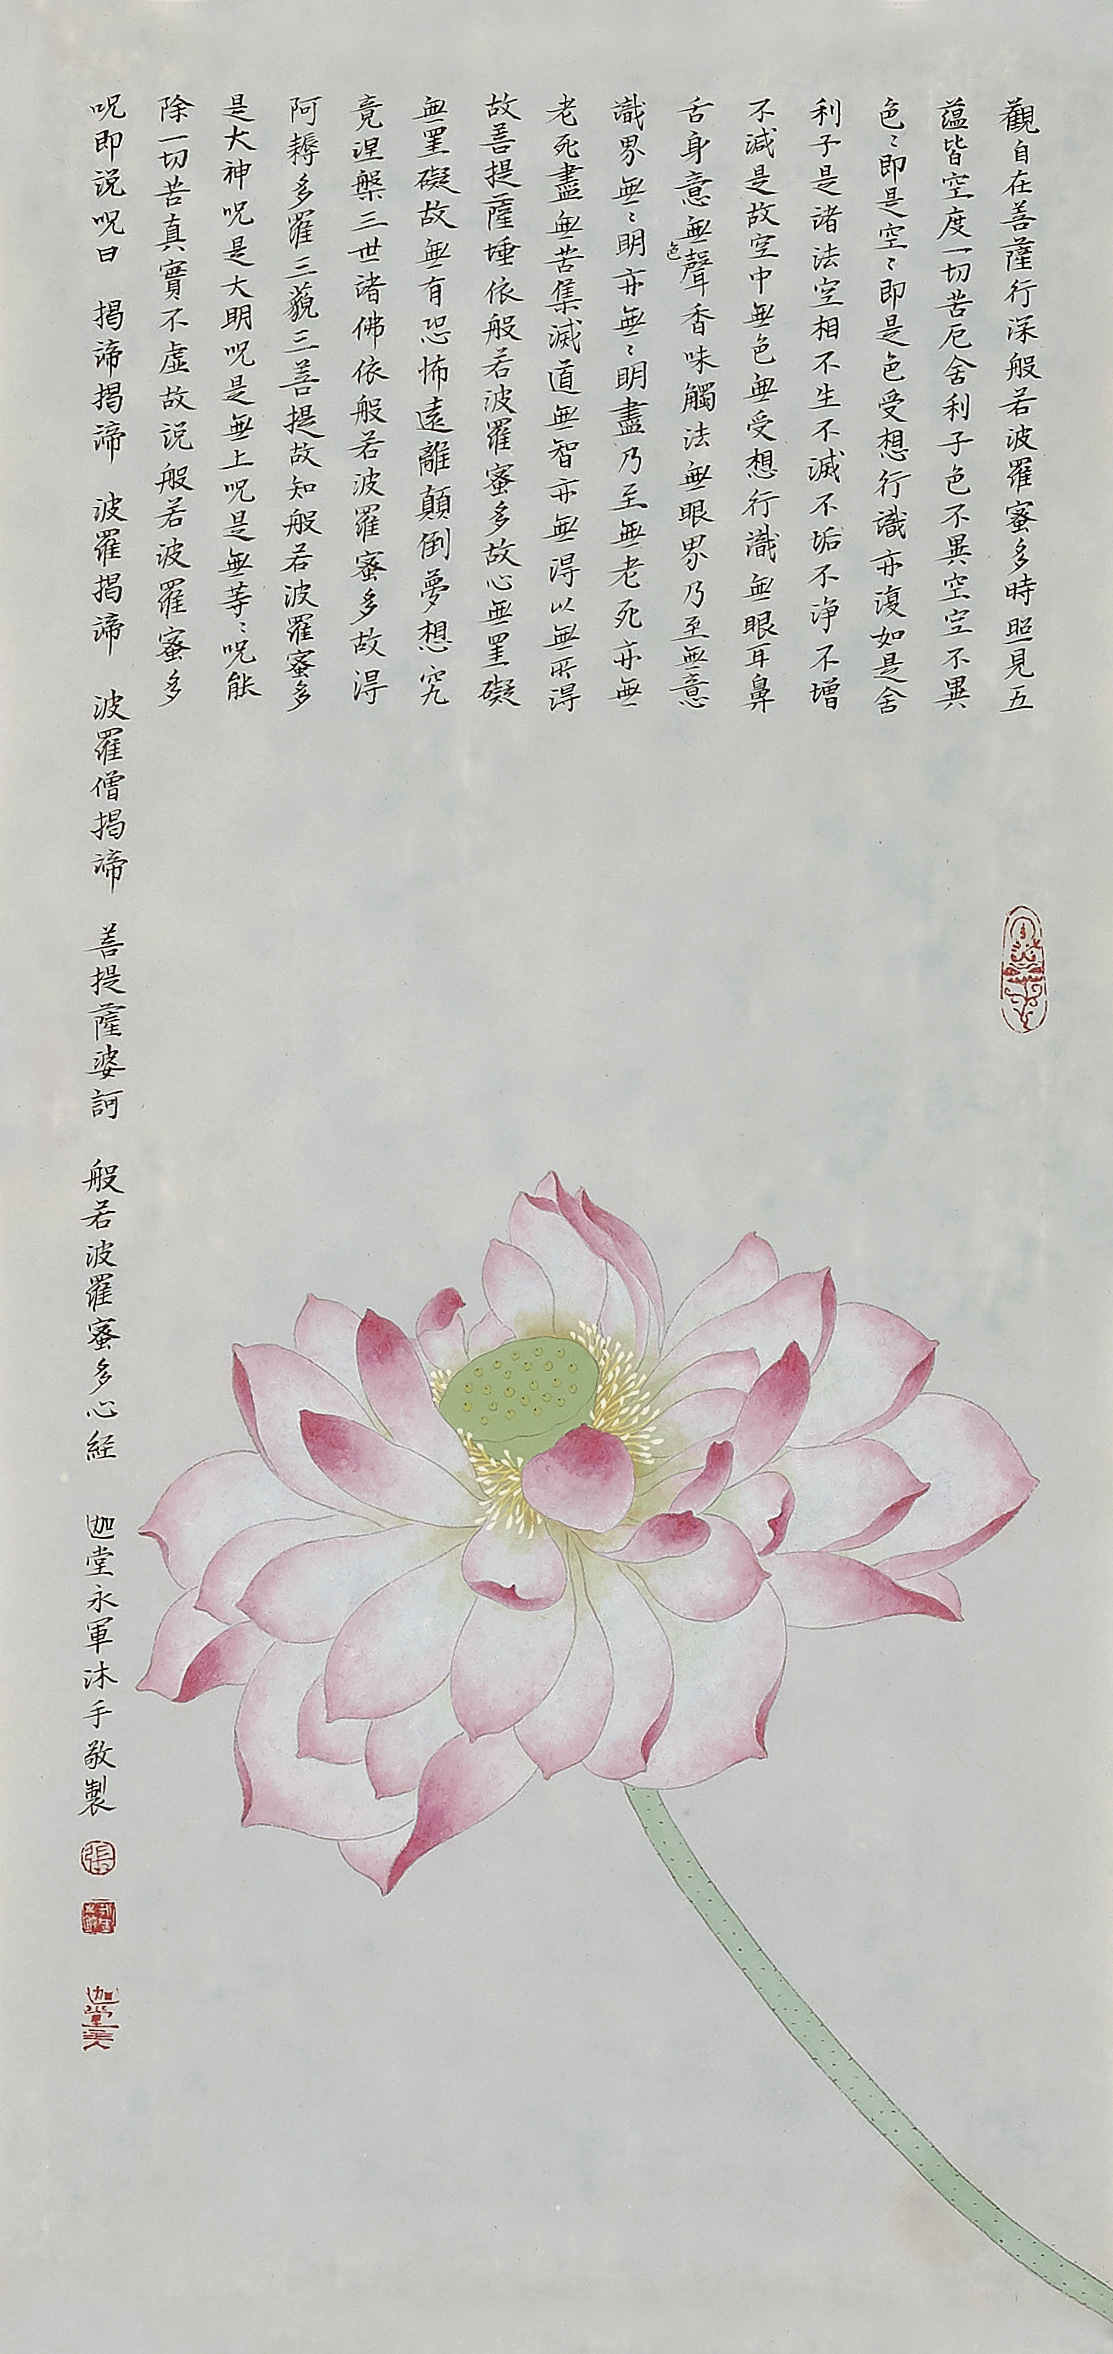 觀自在菩薩行深般若波羅蜜多時照見五
蘊皆空度一切苦厄舍利子色不異空空不異
色〻即是空〻即是色受想行識亦復如是舍
利子是諸法空相不生不滅不垢不净不增
不減是故空中無色無受想行識無眼耳鼻
舌身意無色聲香味觸法無眼界乃至無意
識界無〻明亦無〻明盡乃至無老死亦無
老死盡無苦集滅道無智亦無得以無所得
故菩提薩埵依般若波羅蜜多故心無罣礙
無罣礙故無有恐怖遠離顛倒夢想究
竟涅槃三世諸佛依般若波羅蜜多故得
阿耨多羅三藐三菩提故知般若波羅蜜多
是大神呪是大明呪是無上呪是無等〻呪能
除一切苦真實不虛故说般若波羅蜜多
呪即説呪曰 揭諦揭諦 波羅揭諦 波羅僧揭諦 菩提薩婆訶 般若波羅蜜多心経 迦堂永軍沐手敬製
張
迦堂